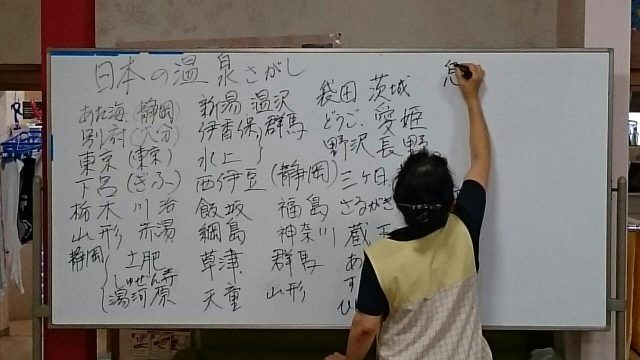 日本の温泉さがし
あた海(静岡)
別府(大分)
東京(東京)
下呂(ぎふ)
栃木 川治
山形 赤湯
静岡 土肥
しゅぜん寺
湯河原
新潟 湯沢
伊香保 群馬
水上
西伊豆(静岡)
飯坂 福島
綱島 神奈川
草津 群馬
天童 山形
袋田 茨城
どうご 愛姫
野沢 長野
三ヶ日
さるがき
蔵王
あ
す
ひ